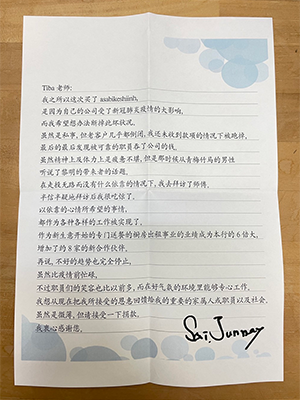 Tiba 老师:
我之所以这次买了 asabikeshiinh,
是因为自己的公司受了新冠肺炎疫情的大影响,
而我希望想办法断掉此坏状况.
虽然是私事, 但老客户几乎都倒闭, 我还未收到款项的情况下被跑掉,
最后的最后发现被可靠的职员吞了公司的钱.
虽然精神上及体力上是疲惫不堪, 但是那时候从青梅竹马的男性
听说了黎明的带来者的话题.
在走投无路而没有什么依靠的情况下, 我去拜访了师傅.
半信半疑地拜访后我很吃惊了.
以依靠的心情所希望的事情,
都作为各种各样的工作被实现了.
作为新生意开始的专门送餐的厨房出租事业的业绩成为本行的 6 倍大,
增加了约 8 家的新合作伙伴.
再说, 不好的趋势也完全停止.
虽然比疫情前忙碌,
不过职员们的笑容也比以前多, 而在好气氛的环境里能够专心工作.
我想从现在把我所接受的恩惠回馈给我的重要的家属人或职员以及社会.
虽然是微薄, 但请接受一下捐款.
我衷心感谢您.